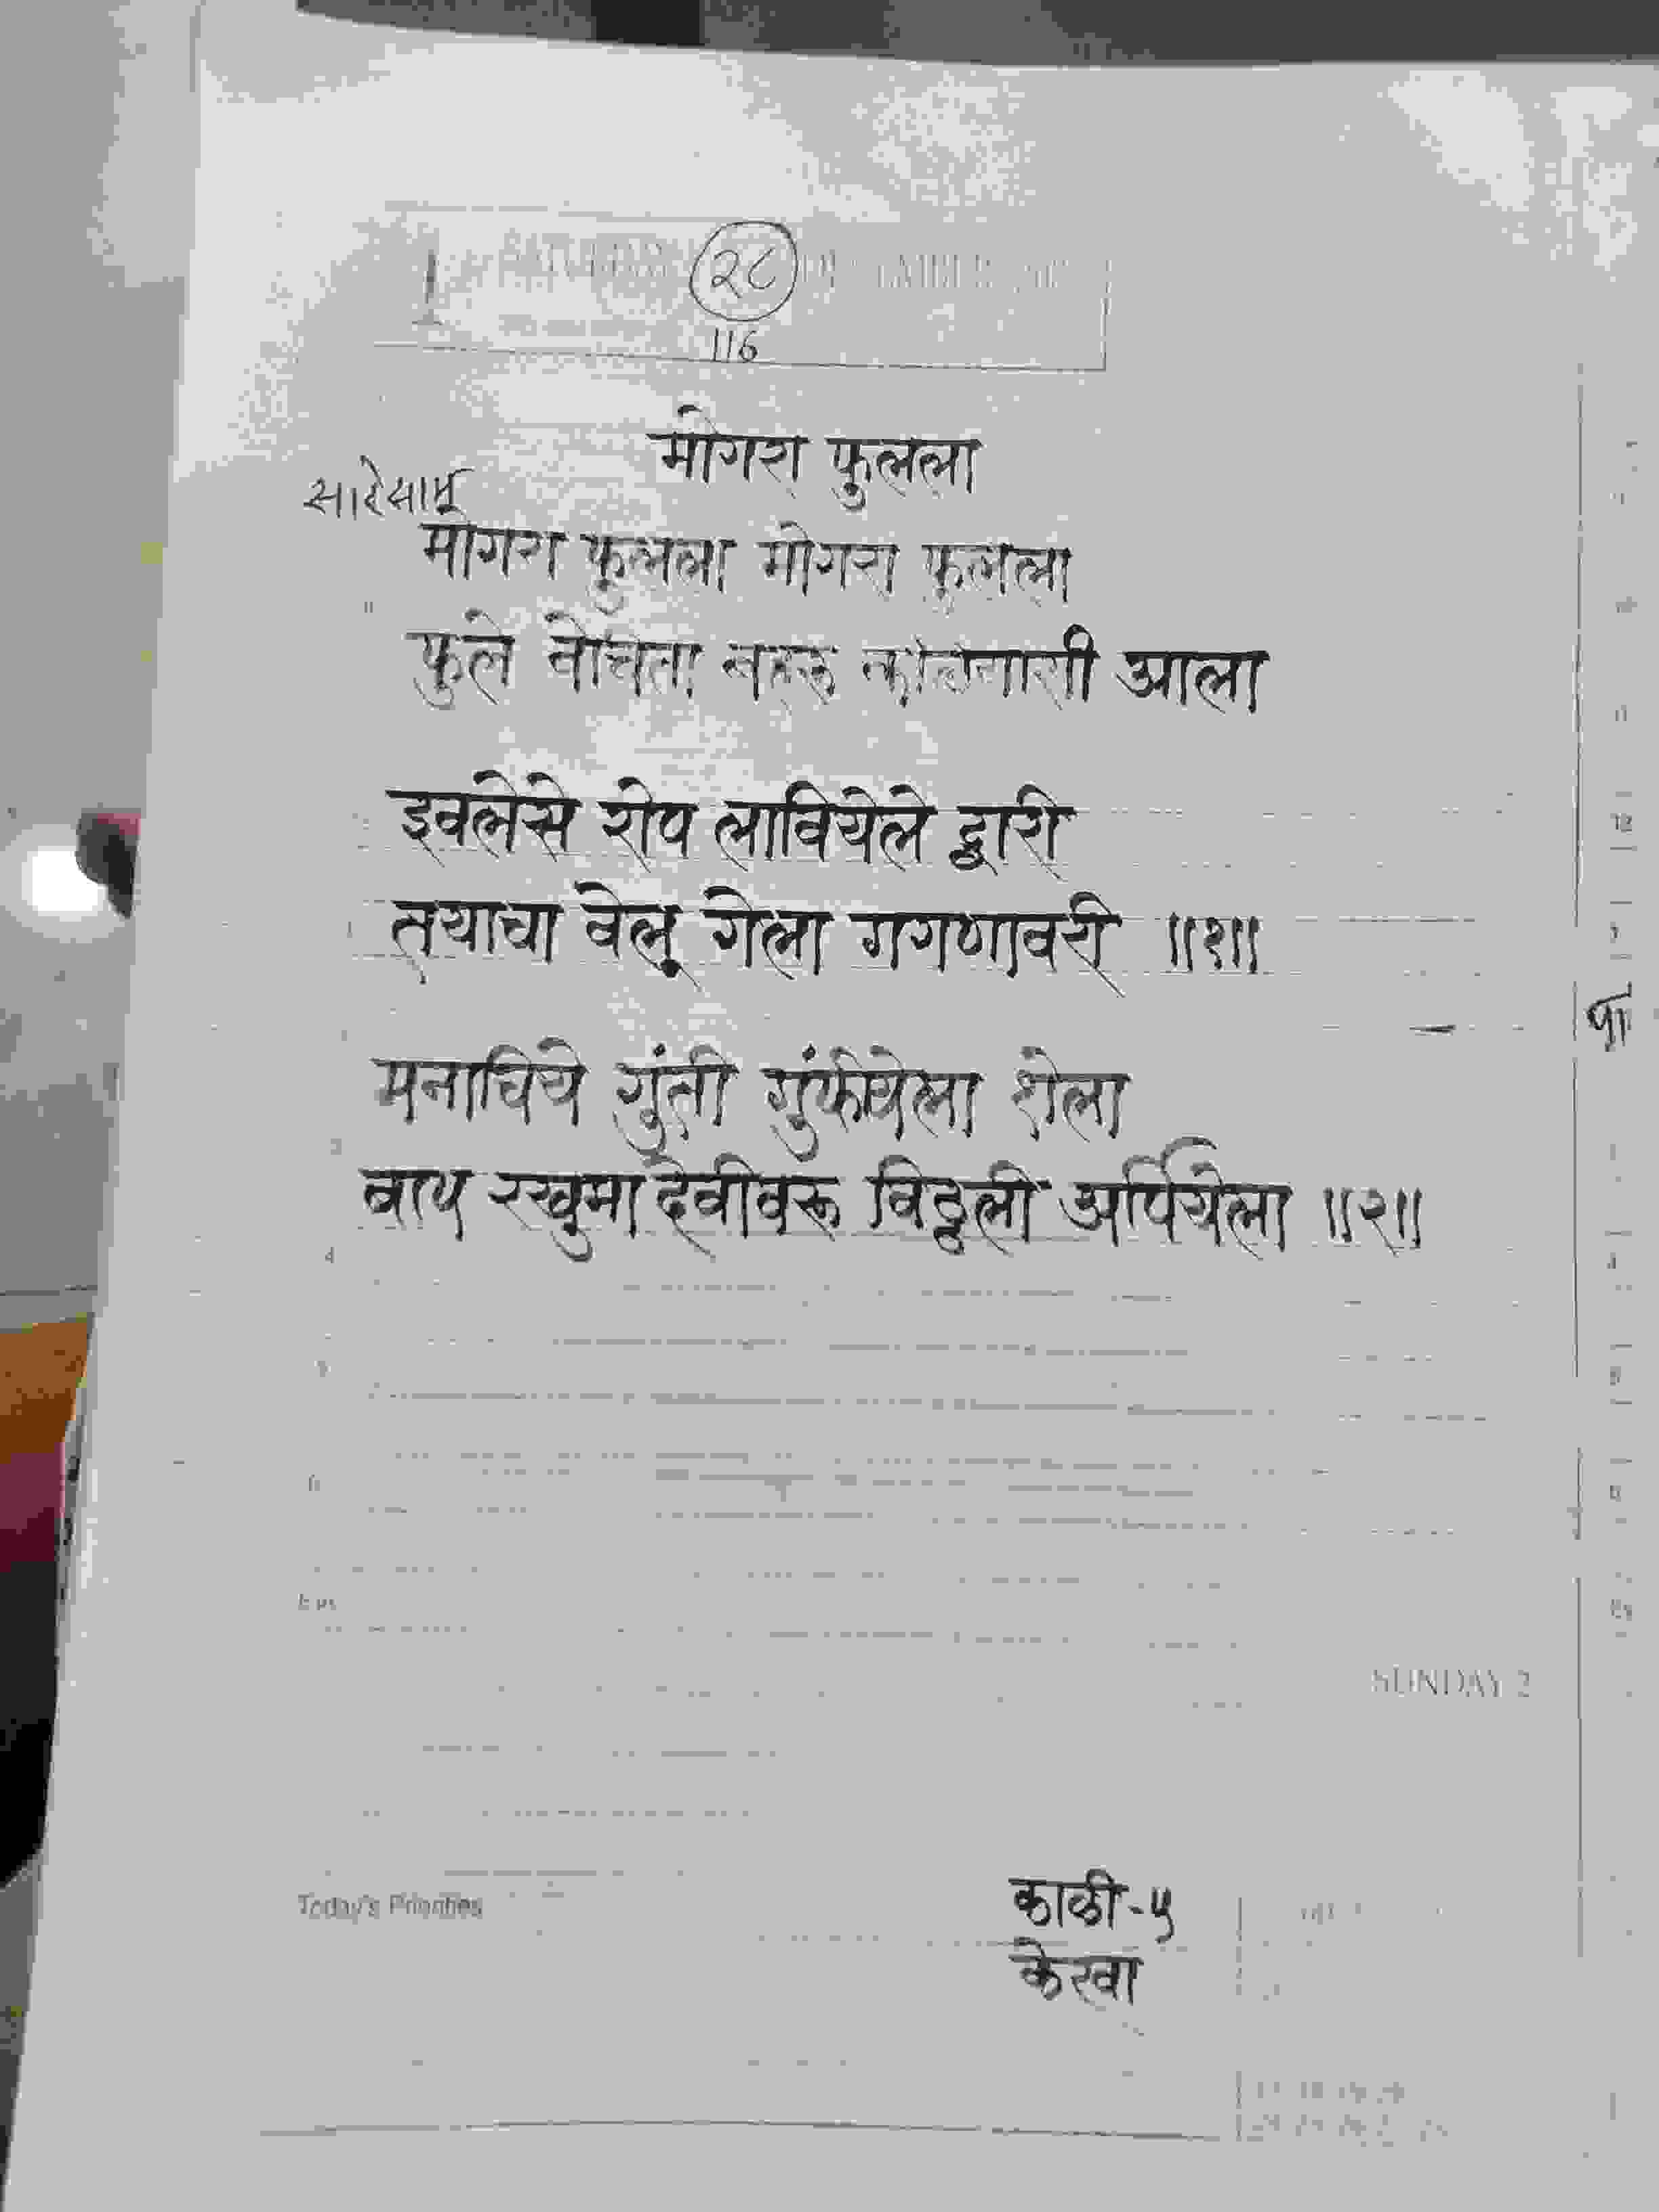 २८
116
मोगरा फुलला
मोगरा फुलला मोगरा फुलला
फुले वेचिता बहरू कळियाशी आला
इवलेसे रोप लावियेले द्वारी
तयाचा वेलू गेला गगणावरी ॥१॥
मनाचिये गुंती गुंफीयेला शेला
बाप रखुमा देवीवरू विठ्ठली अर्पियेला ॥२॥
SUNDAY 2
Today's Priorities
काळी-५
केरवा